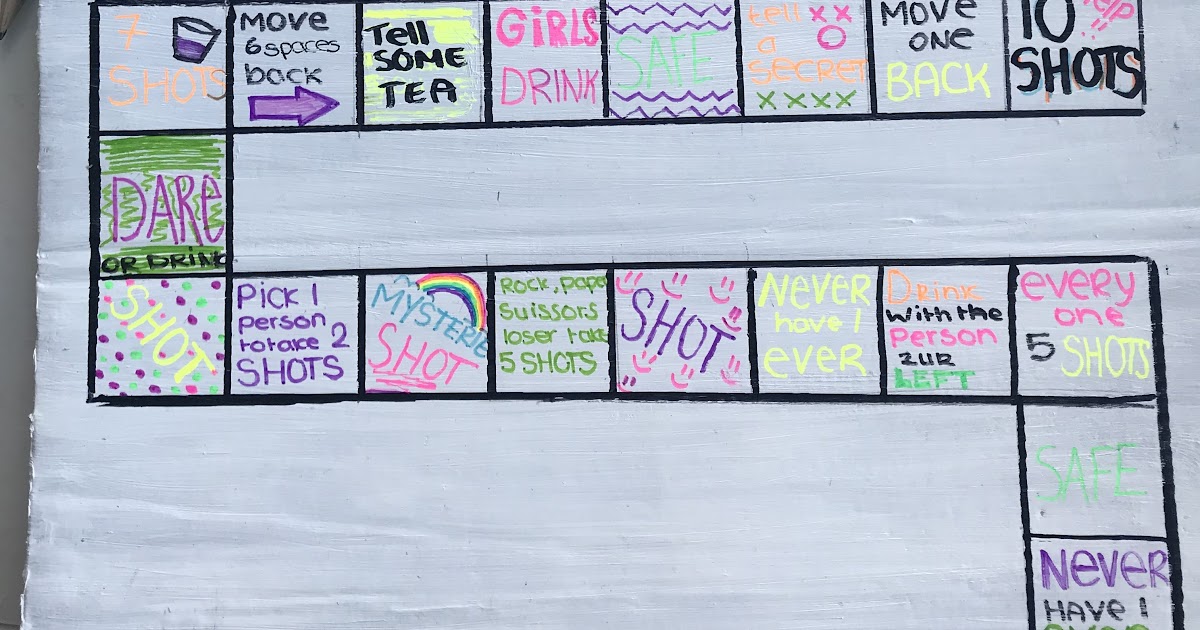 7
SHOTS
MOVE
6 spaces
back
Tell
SOME
TEA
GiRLS
DRINK
SAFE
tell
a
secret
MOVE
ONE
BACK
10
SHOTS
DARE
OR DRINK
SHOT
Pick 1
person
to take 2
SHOTS
MYSTERIE
SHOT
Rock, pape
Suissors
loser take
5 SHOTS
SHOT
NEVER
have I
EVER
Drink
with the
Person
2UR
LEFT
every
one
5 SHOTS
SAFE
NEVER
HAVE I